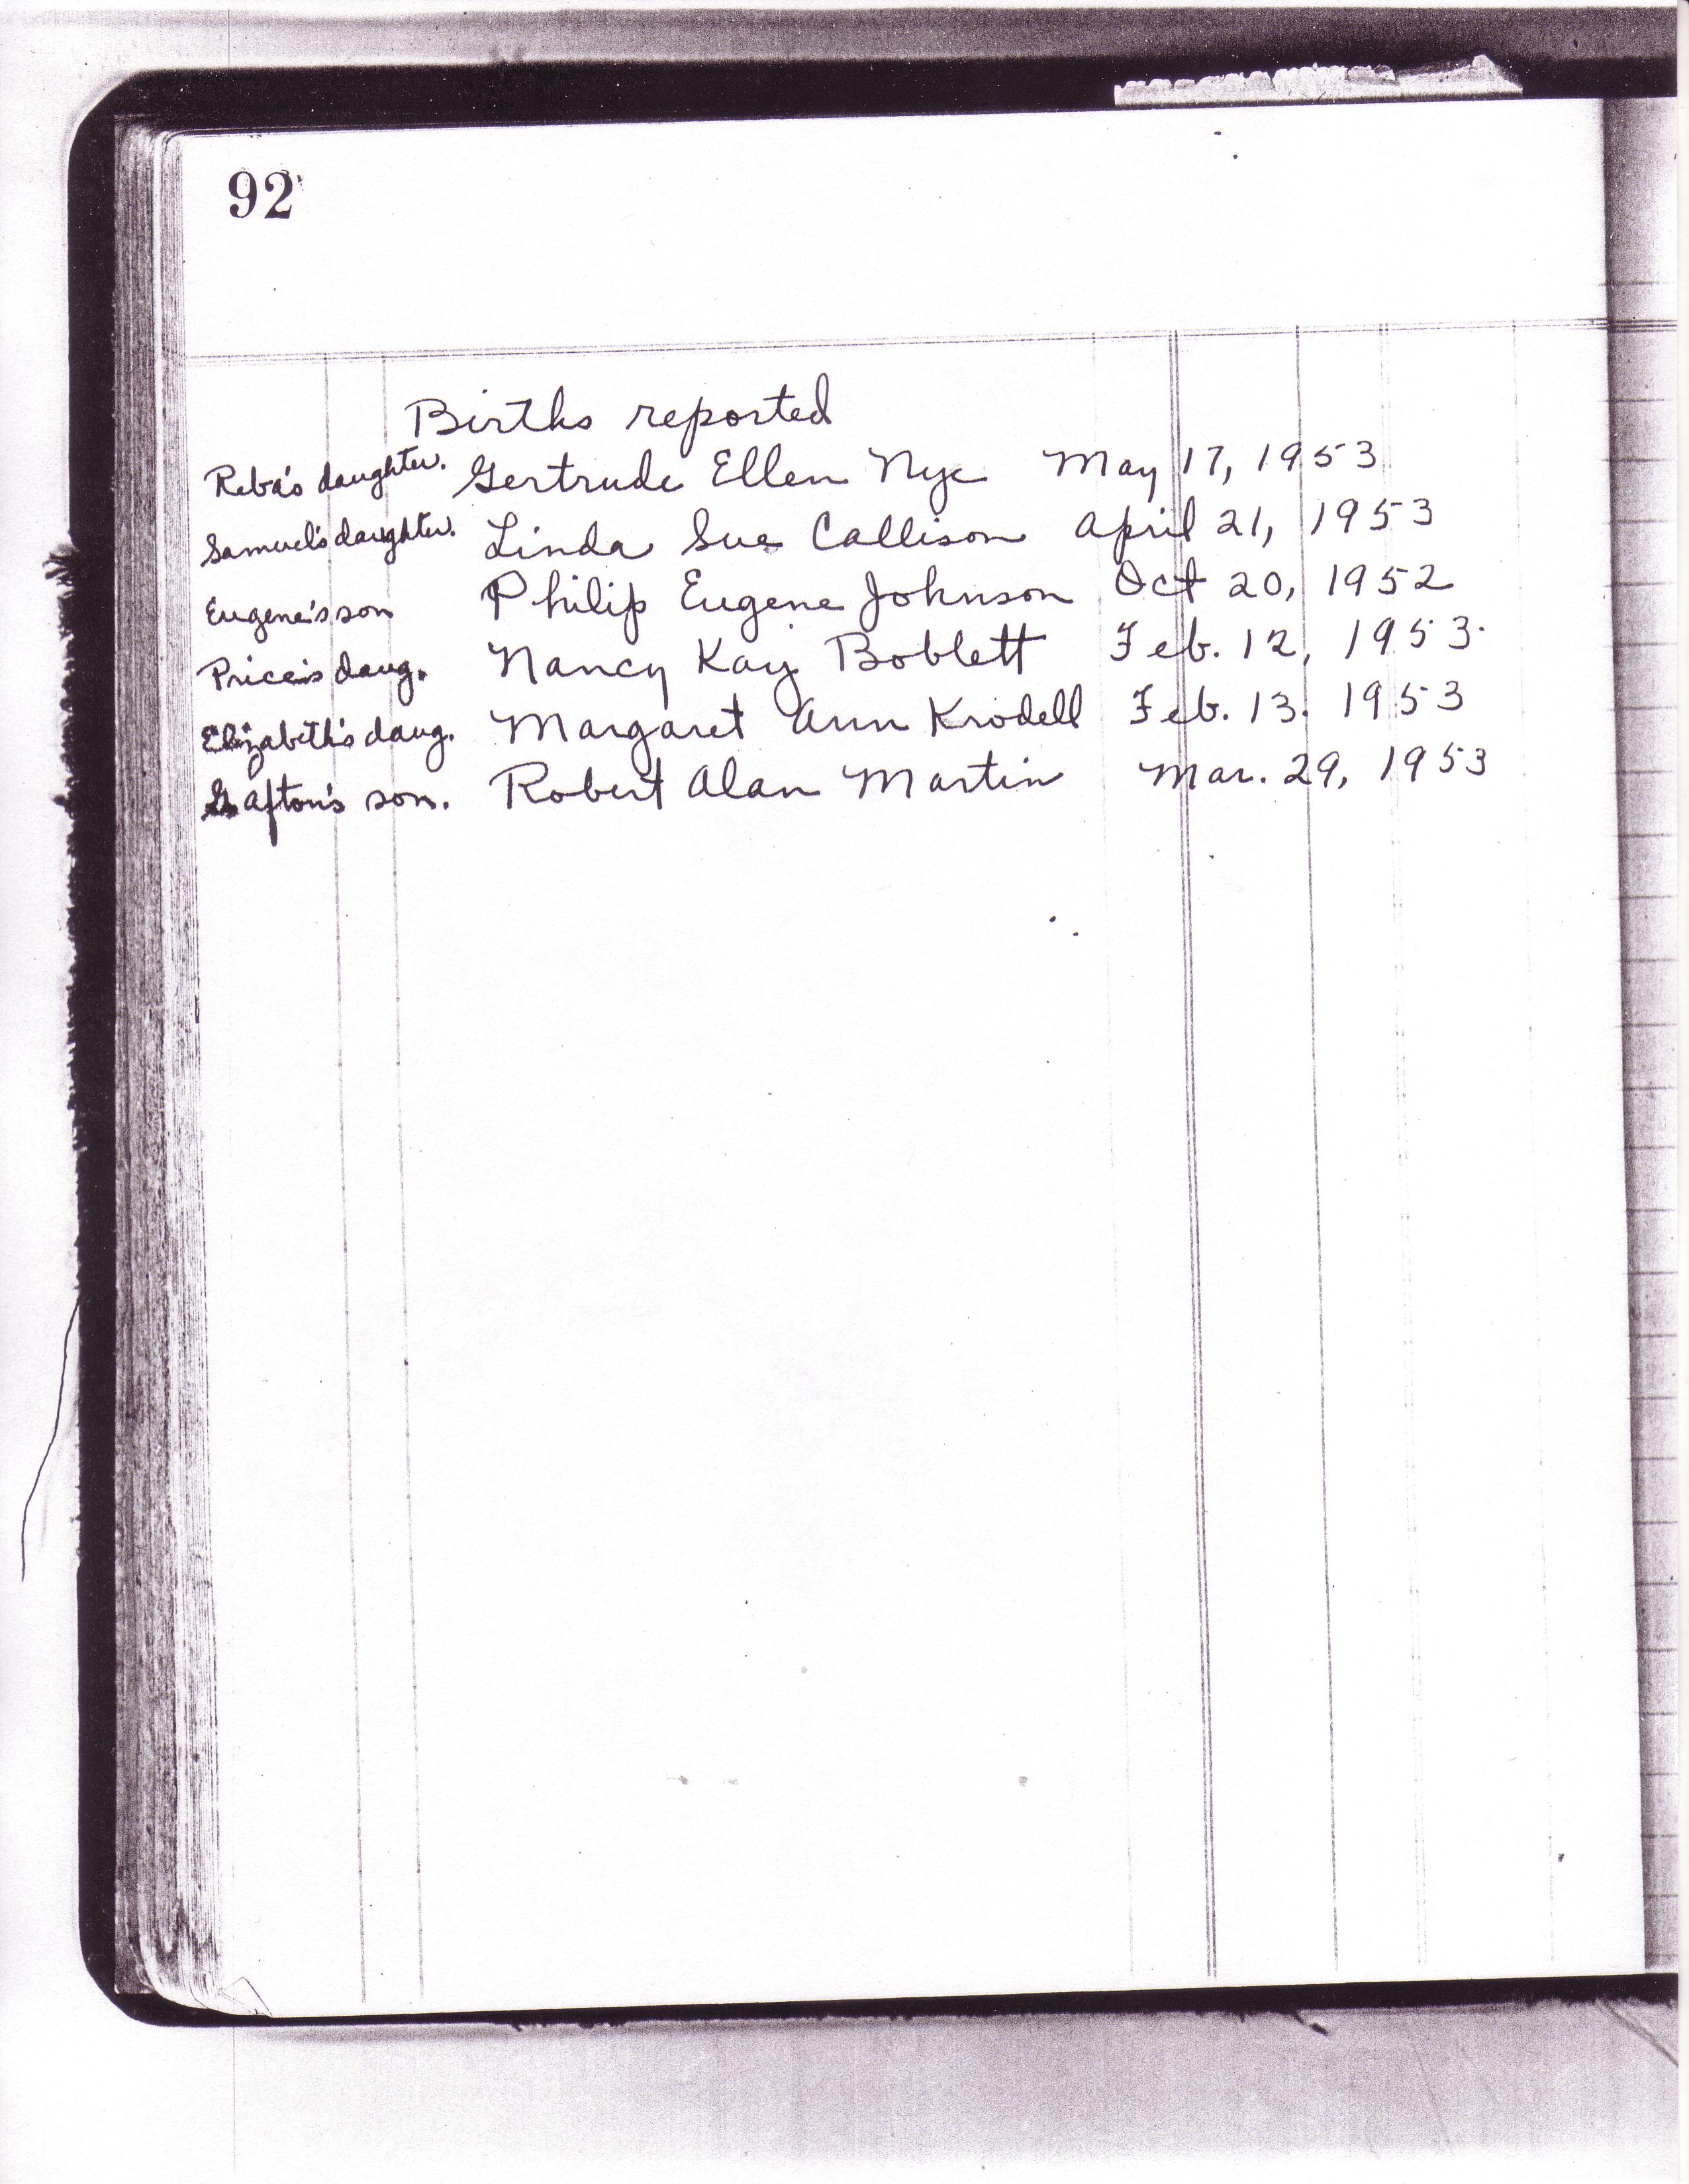 92
Births reported
Reba's daughter. Gertrude Ellen Nye May 17, 1953
Samuel's daughter. Linda Sue Callison April 21, 1953
Eugene's son Philip Eugene Johnson Oct 20, 1952
Price's daug. Nancy Kay Boblett Feb. 12, 1953.
Elizabeth's daug. Margaret Ann Krodell Feb. 13. 1953
Afton's son. Robert Alan Martin Mar. 29, 1953